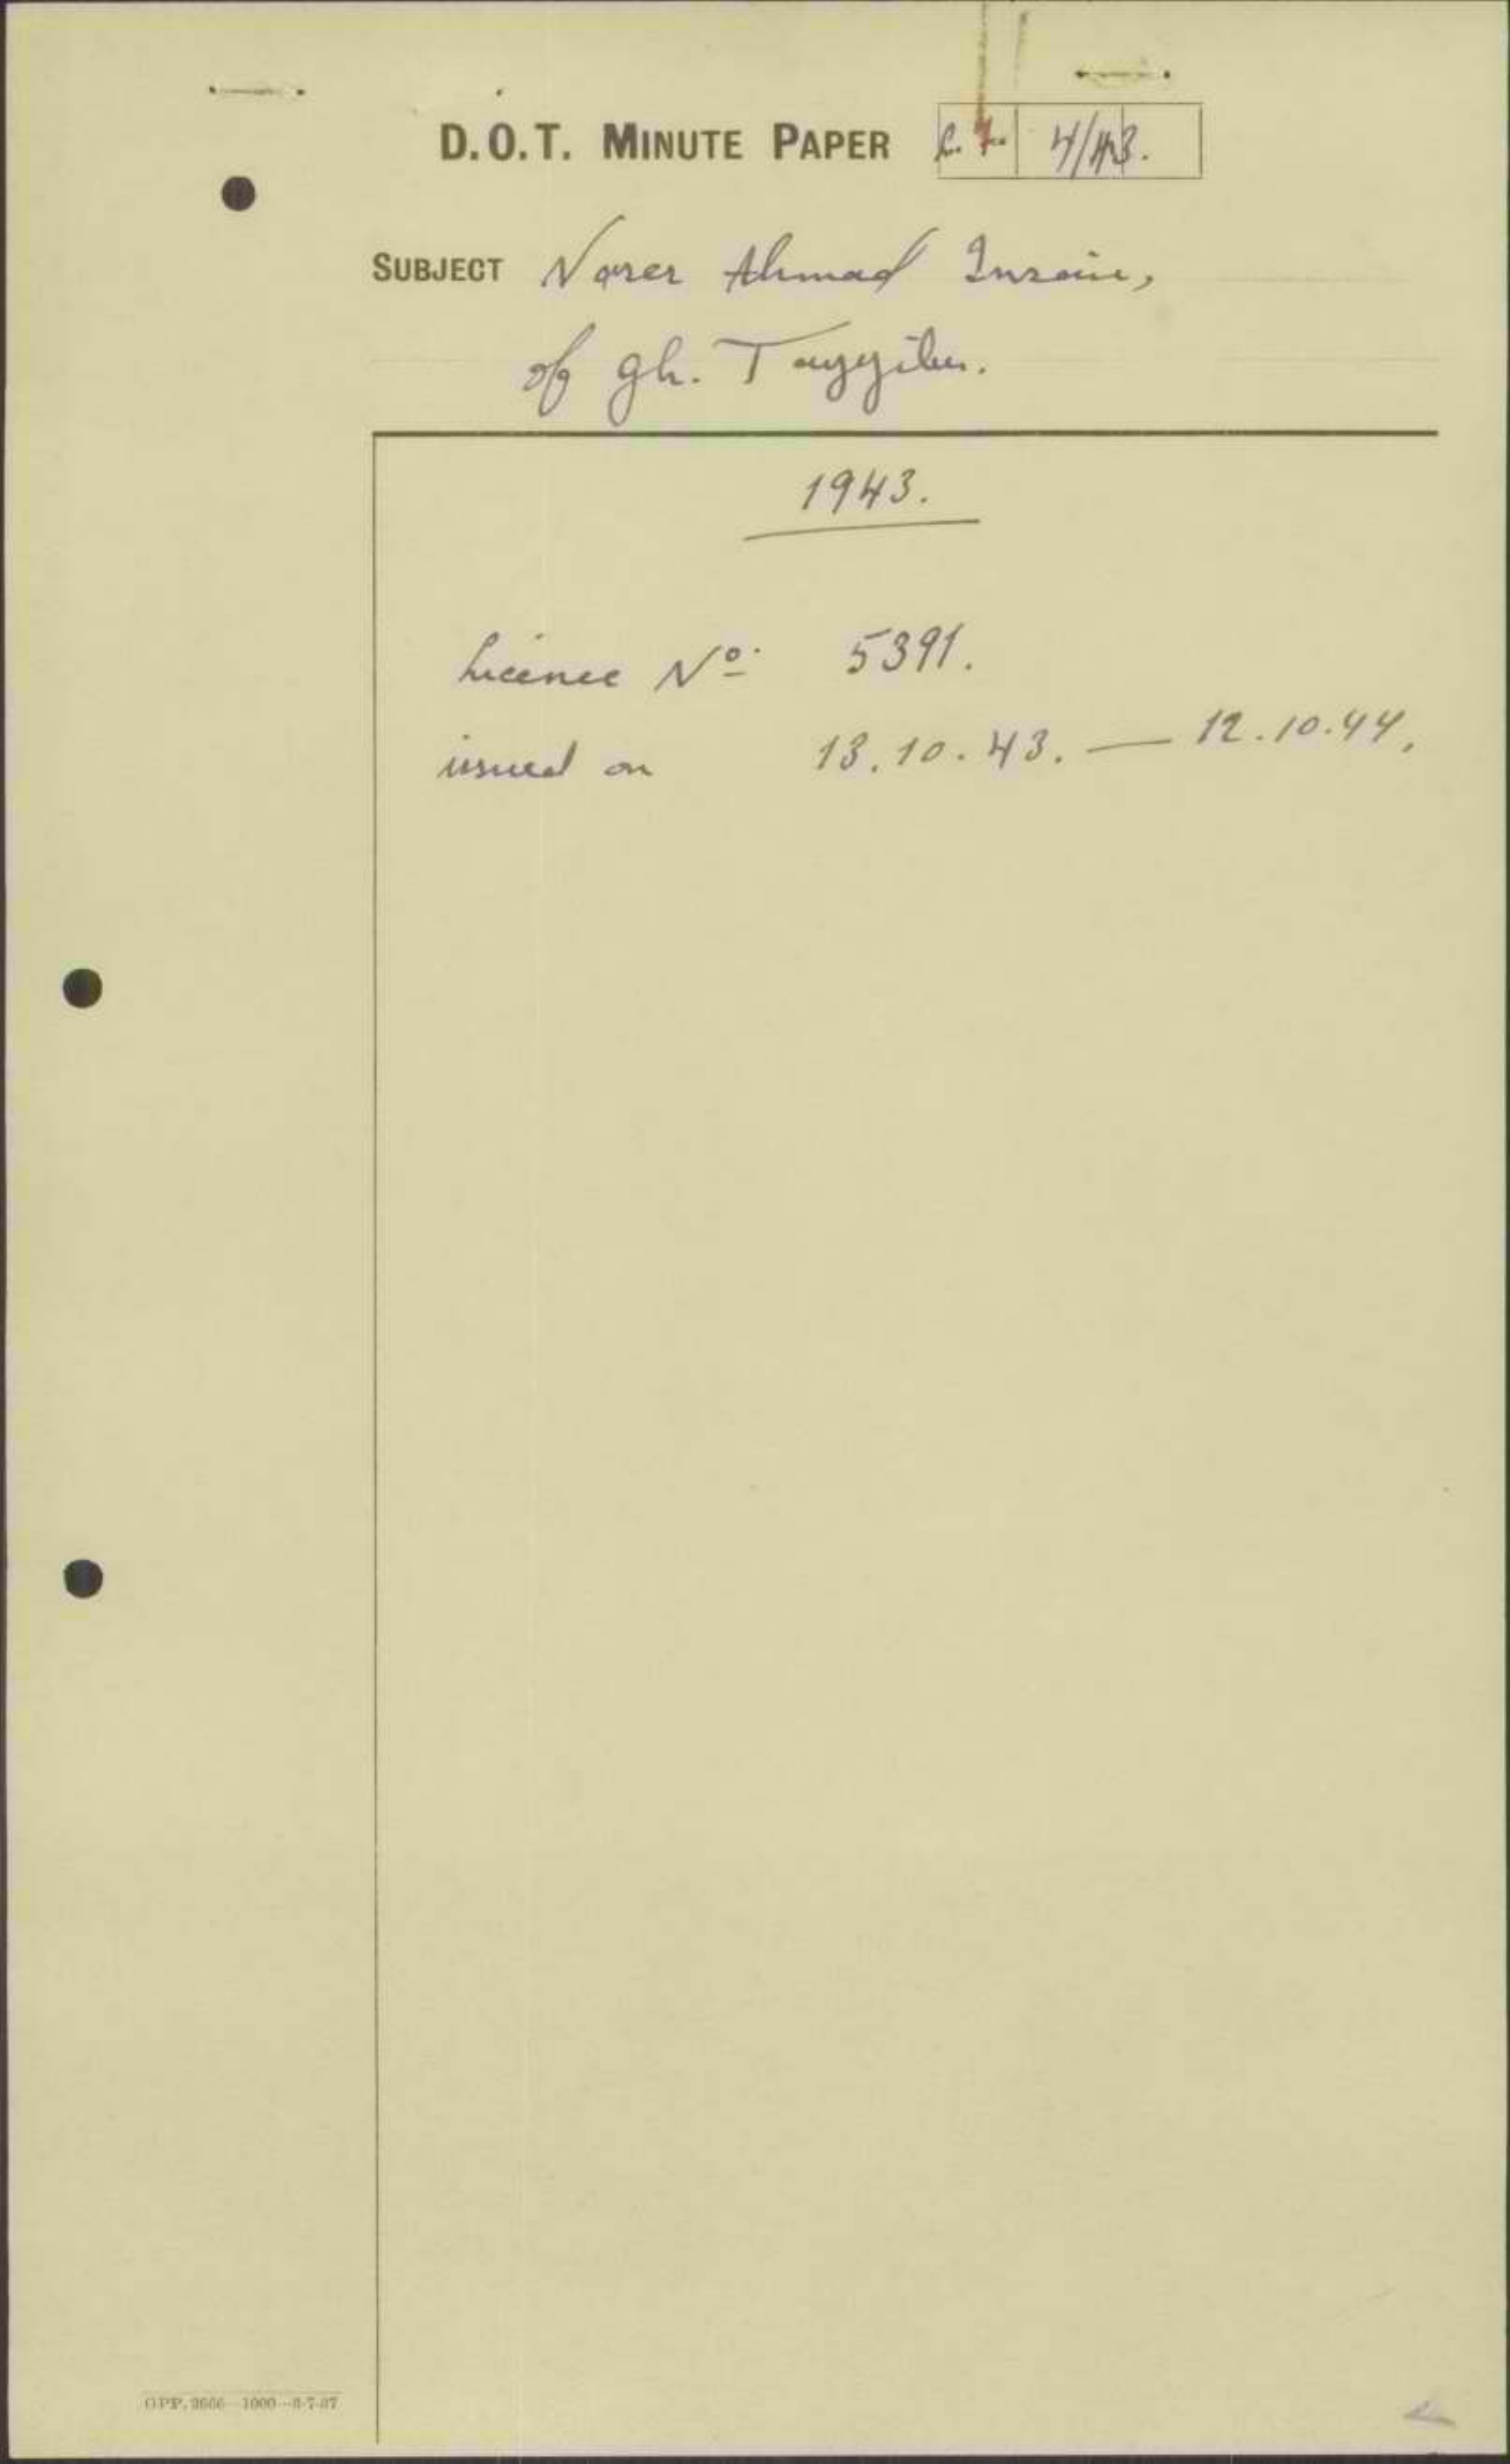 D.O.T. MINUTE PAPER 4/43.
SUBJECT Naser Ahmad
of Gh. Tayyibu.
1943.
Licence Nº 5391.
issued on 13.10.43. — 12.10.44.
GPP. 2666—1000—8-7-37